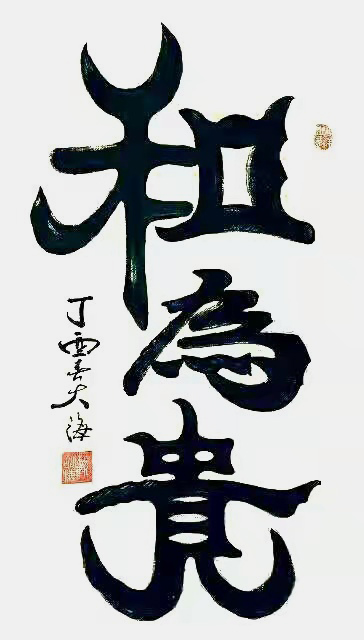 和為貴
丁酉 海